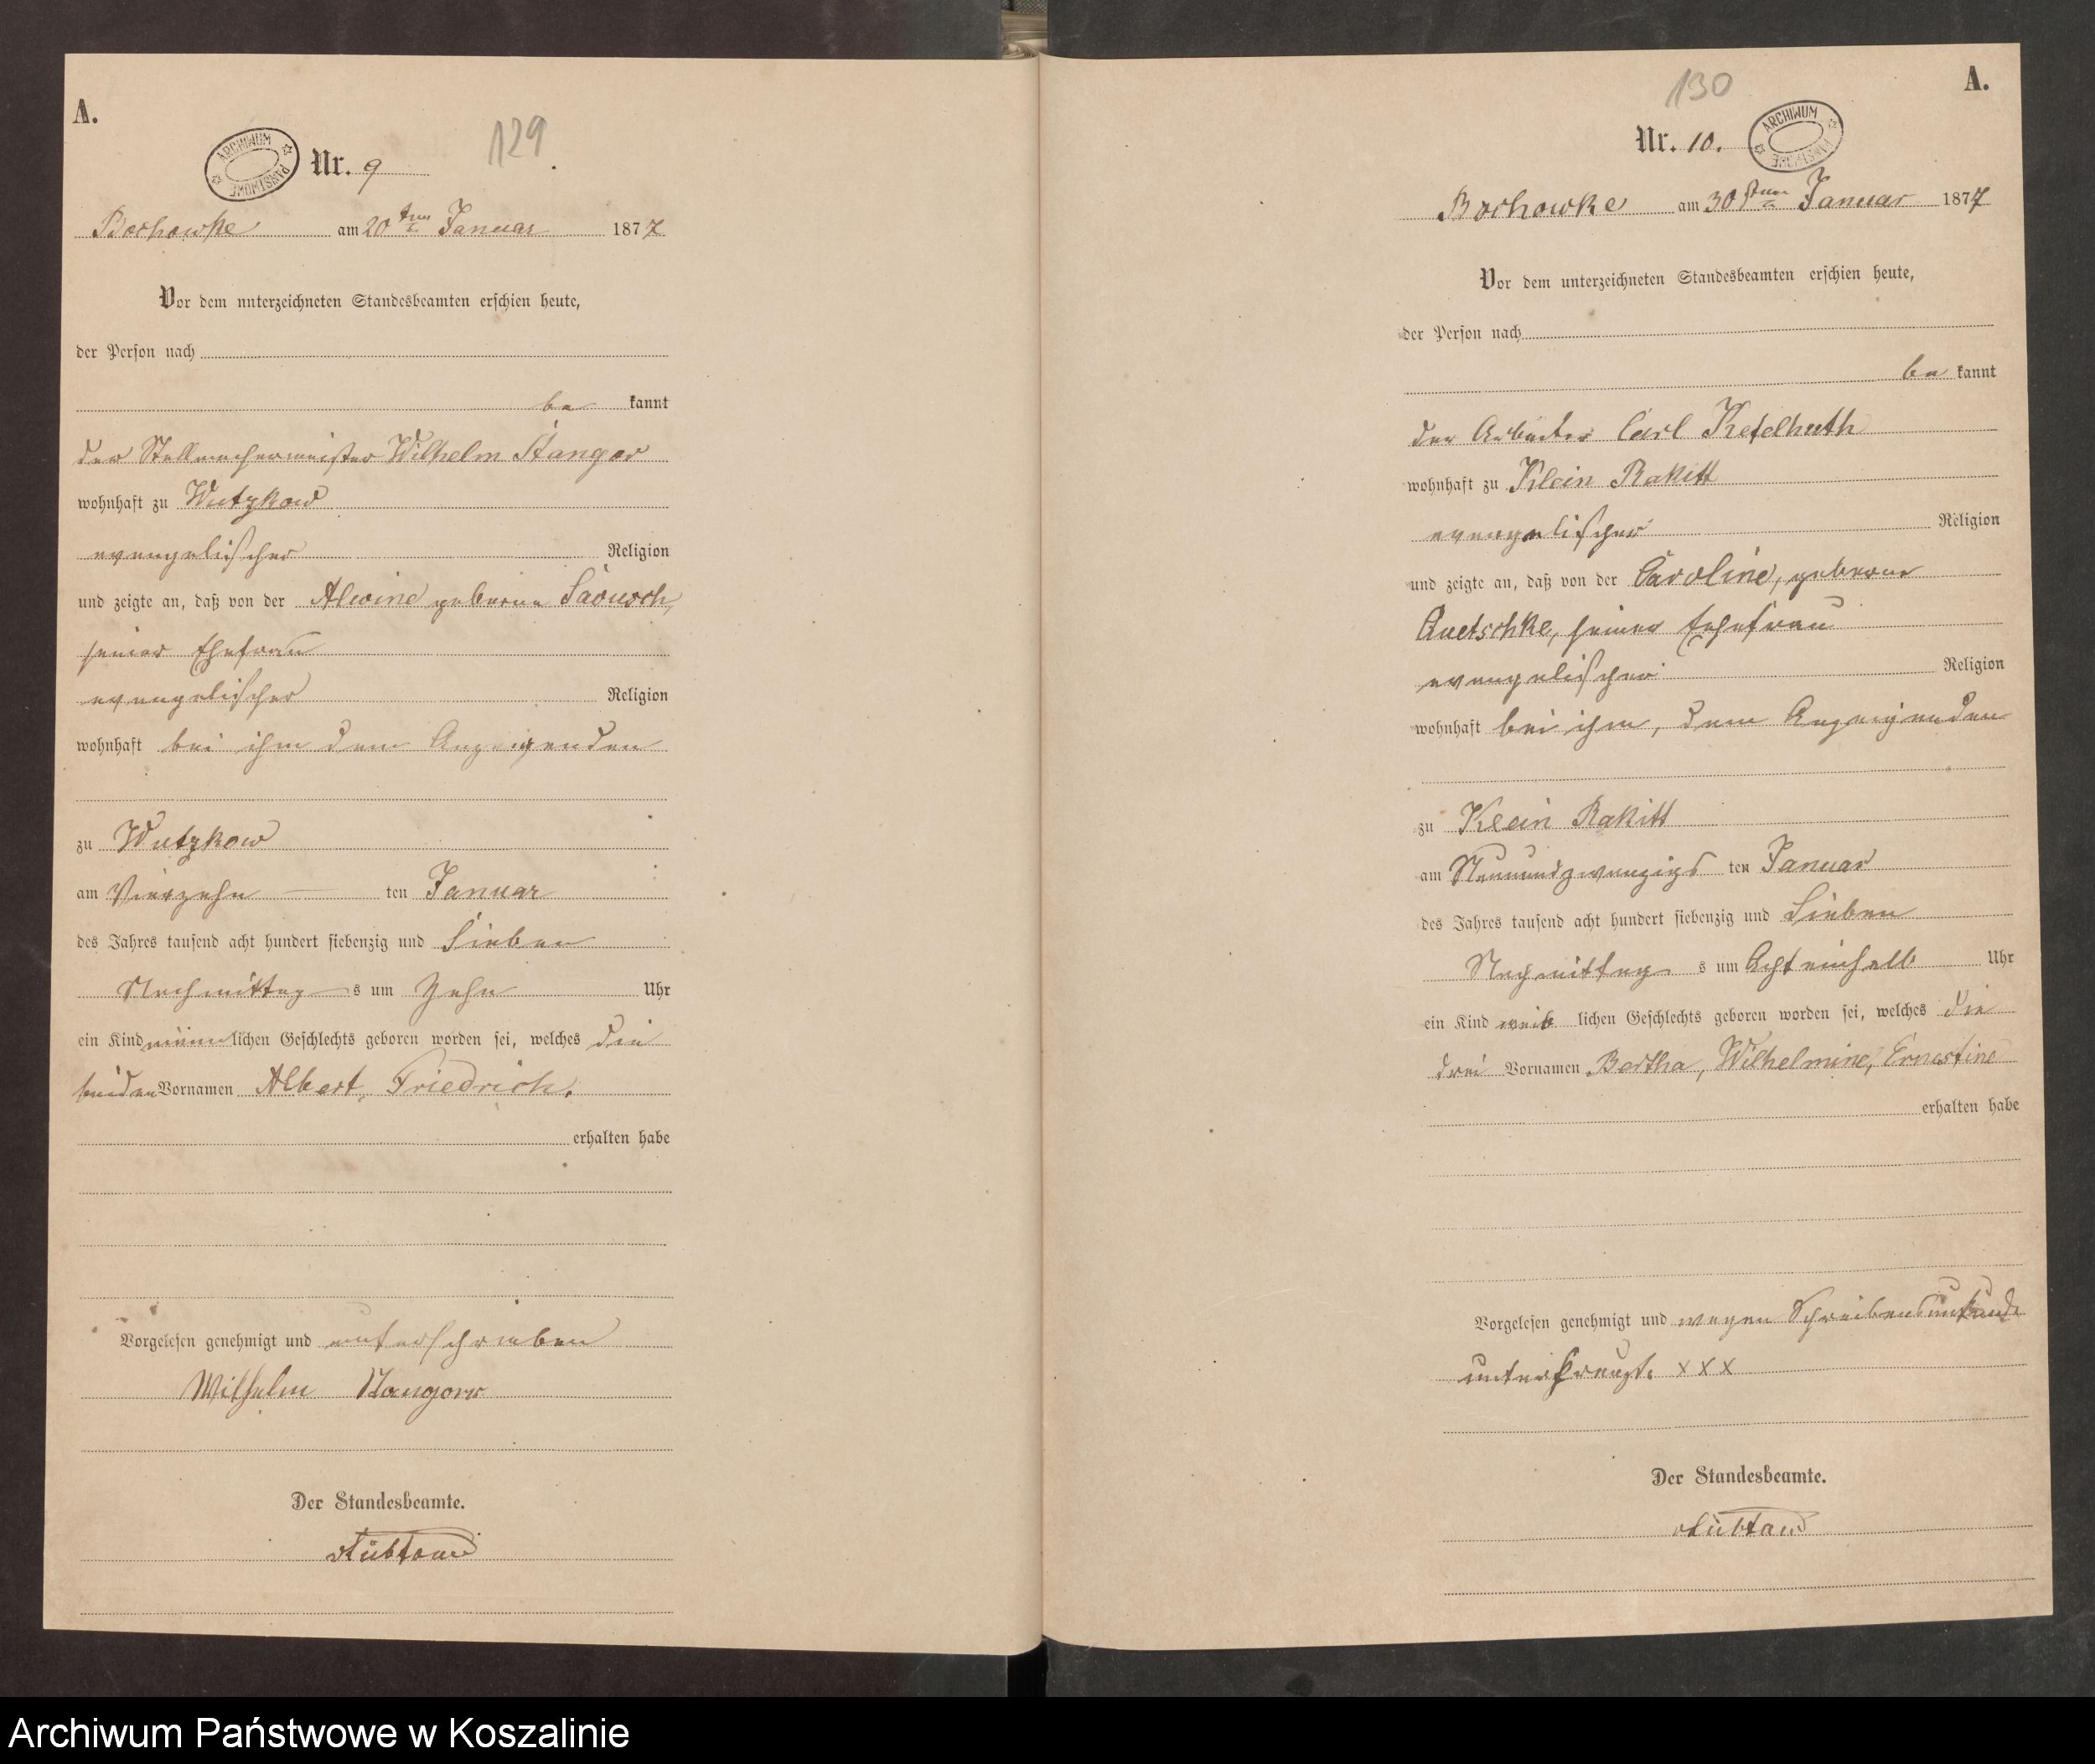 A.
129
ARCHIWUM PAŃSTWOWE
Nr. 9
Bochowke am 20ten Januar 1877
Vor dem unterzeichneten Standesbeamten erschien heute,
der Person nach
be kannt
der Stellmachermeister Wilhelm
wohnhaft zu Wutzkow
evangelischer Religion
und zeigte an, daß von der Alwine geborene
seiner Ehefrau
evangelischer Religion
wohnhaft bei ihm dem Anzeigenden
zu Wutzkow
am Vierzehn — ten Januar
des Jahres tausend acht hundert siebenzig und Sieben
Nachmittag s um Zehn Uhr
ein Kind männlichen Geschlechts geboren worden sei, welches die
beiden Vornamen Albert, Friedrich.
erhalten habe
Vorgelesen genehmigt und unterschrieben
Wilhelm
Der Standesbeamte.
A.
130
Nr. 10.
ARCHIWUM PAŃSTWOWE
Bochowke am 30sten Januar 1877
Vor dem unterzeichneten Standesbeamten erschien heute,
der Person nach
be kannt
der Arbeiter Carl Keselhuth
wohnhaft zu Klein Rakitt
evangelischer Religion
und zeigte an, daß von der Caroline, geborene
Quetschke, seiner Ehefrau
evangelischer Religion
wohnhaft bei ihm, dem Anzeigenden
zu Klein Rakitt
am Neunundzwanzigs ten Januar
des Jahres tausend acht hundert siebenzig und Sieben
Nachmittag s um Achteinhalb Uhr
ein Kind weib lichen Geschlechts geboren worden sei, welches die
drei Vornamen Bertha, Wilhelmine, Ernestine
erhalten habe
Vorgelesen genehmigt und wegen Schreibensunkunde
unterkreuzt. XXX
Der Standesbeamte.
Archiwum Państwowe w Koszalinie